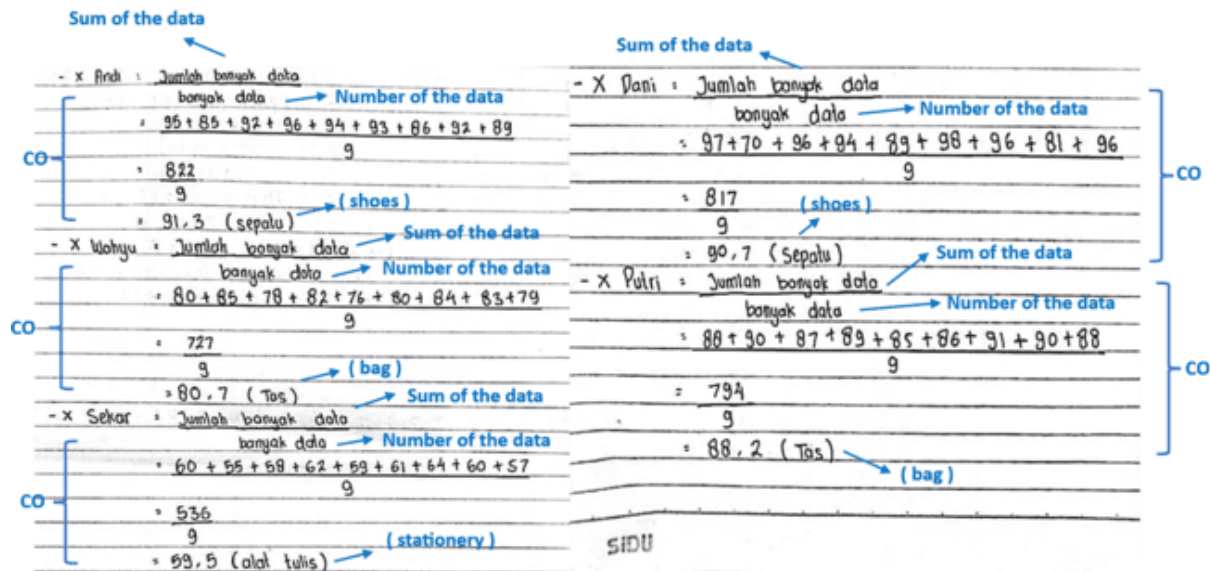 Sum of the data
- x Andi : Jumlah banyak data
banyak data → Number of the data
= 95 + 85 + 92 + 96 + 94 + 93 + 86 + 92 + 89
9
= 822
9
= 91,3 (sepatu) (shoes)
- x Wahyu = Jumlah banyak data Sum of the data
banyak data → Number of the data
= 80 + 85 + 78 + 82 + 76 + 80 + 84 + 83 + 79
9
= 727
9
= 80,7 (Tas) (bag)
- x Sekar = Jumlah banyak data Sum of the data
banyak data → Number of the data
= 60 + 55 + 58 + 62 + 59 + 61 + 64 + 60 + 57
9
= 536
9
= 59,5 (alat tulis) (stationery)
CO
CO
CO
Sum of the data
- X Dani = Jumlah banyak data
banyak data → Number of the data
= 97 + 70 + 96 + 94 + 89 + 98 + 96 + 81 + 96
9
= 817
9
= 90,7 (Sepatu) (shoes)
- X Putri = Jumlah banyak data Sum of the data
banyak data → Number of the data
= 88 + 90 + 87 + 89 + 85 + 86 + 91 + 90 + 88
9
= 794
9
= 88,2 (Tas) (bag)
CO
CO
SIDU